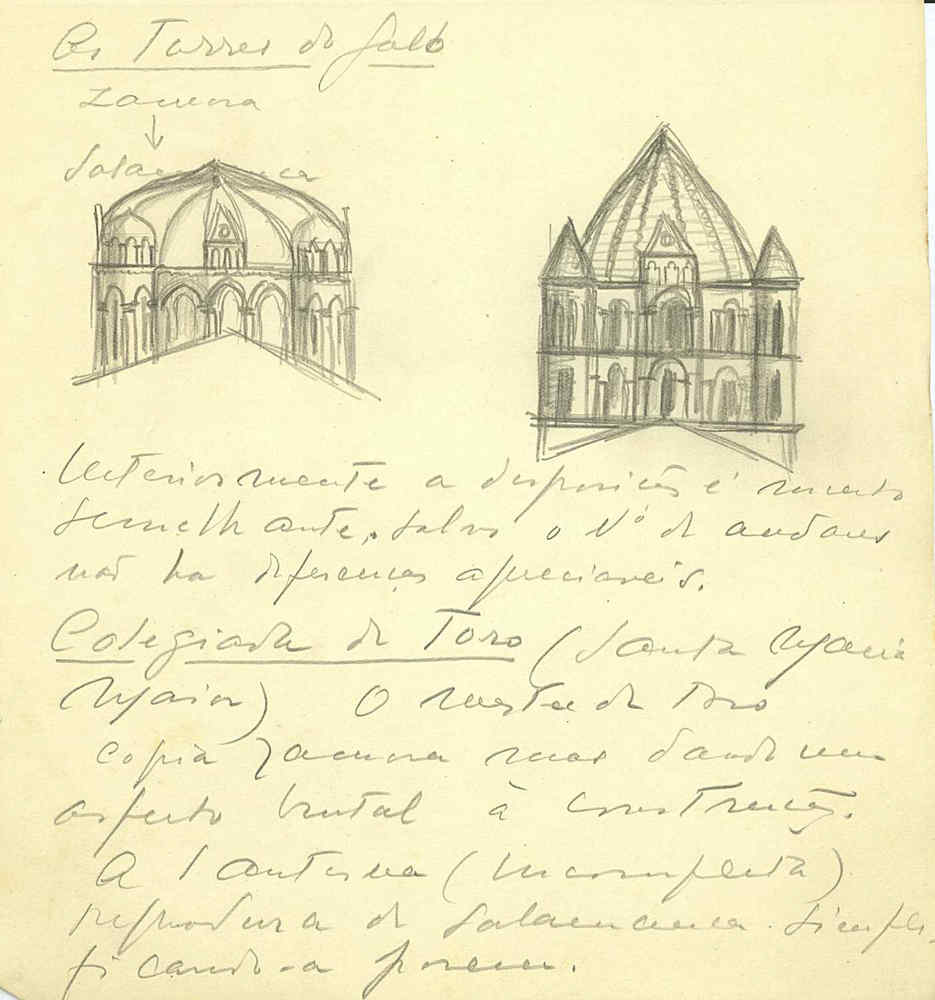 As Torres do Galo
Zamora
Salamanca
Interiormente a disposição é muito
semelhante, salvo o Nº de andares
não ha diferenças apreciaveis.
Colegiada de Toro (Santa Maria
Maior) O mestre de Toro
copia Zamora mas dando um
aspecto brutal à construção.
A lanterna (incompleta)
reprodura de Salamanca. Simpli-
ficando-a porem.